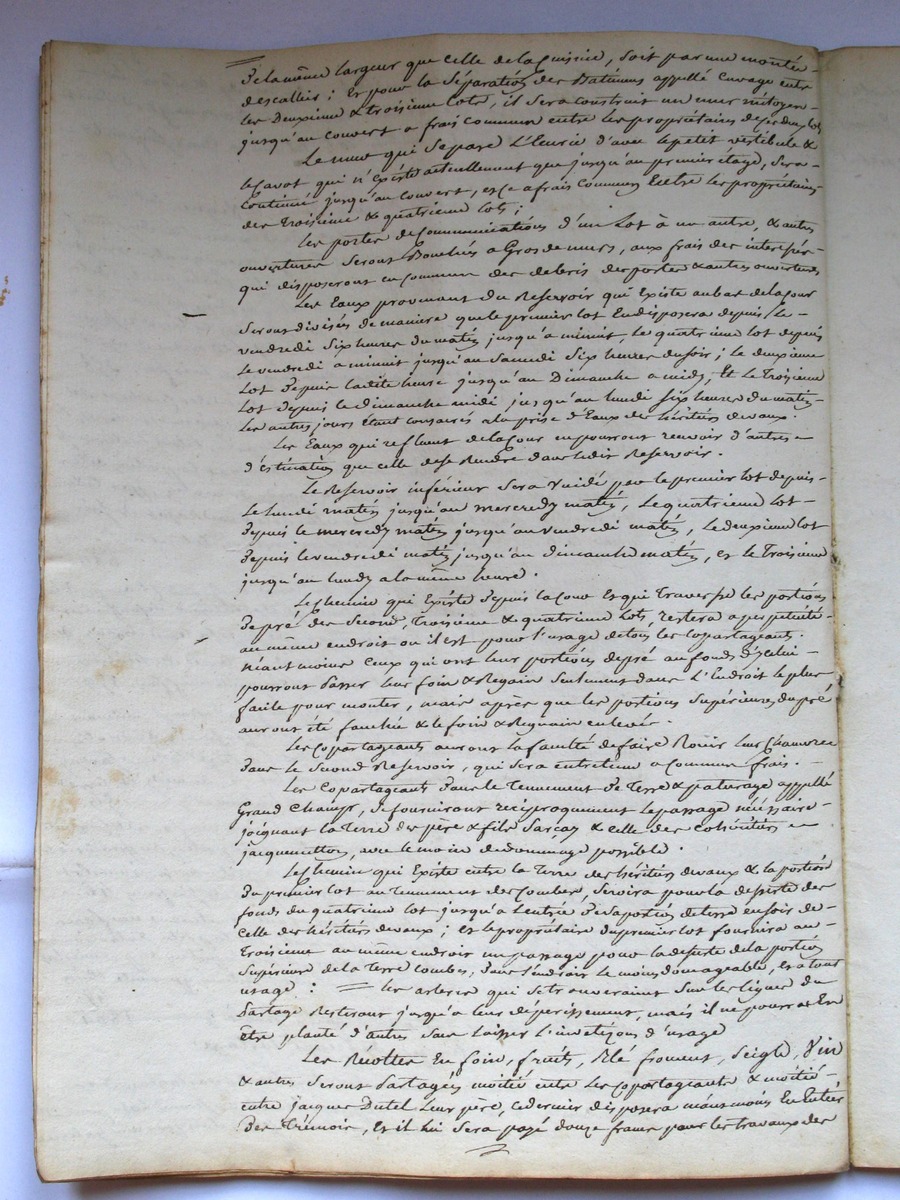 de la même largeur que celle de la Cuisine, soit par une montée
descallier ; Et pour la Séparation des Batimens appellé Cuvage entre
les Deuxieme & troisieme lots, il sera construit un mur mitoyen
jusqu'au couvert a frais communs entre les propriétaires de ses deux lots
Le mur qui Separe L'Ecurie d'avec le petit vestibule &
le Cavot qui n'Existe actuellement que jusqu'au premier étage, Sera
Continué jusqu'au couvert, et ce a frais communs Entre les propriétaires
des Troisieme & quatrieme lots ;
Les portes de Communications d'un Lot à un autre, & autres
ouvertures Seront Bouchées a Gros de murs, aux frais des interessés
qui disposeront en Commun des debris des portes & autres ouvertures
Les Eaux provenant du Reservoir qui Existe au bas de la Cour
Seront divisés de maniere que le premier lot En disposera depuis le
vendredi Six heures du matin jusqu'a minuit, le quatrieme lot depuis
le vendredi a minuit jusqu'au Samedi Six heures du soir ; le deuxieme
lot depuis ladite heure jusqu'au Dimanche a midy, Et le Troisieme
lot depuis le dimanche midi jusqu'au lundi six heures du matin
Les autres jours étant consacrés a la prise d'Eaux des héritiers devaux.
Les Eaux qui refluent de la Cour en pourront recevoir d'autres
d'estination que celle de se Rendre dans ledit Reservoir.
Le Reservoir inférieur Sera Vuidé par le premier lot depuis
le lundi matin jusqu'au mercredy matin, Le quatrieme lot
depuis le mercredy matin jusqu'au vendredi matin, Le deuxieme lot
depuis le vendredi matin jusqu'au dimanche matin, et le Troisieme
jusqu'au lundy a la même heure.
Le Chemin qui Existe depuis la Cour Et qui Traverse les portions
de pré des Second, Troisieme & quatrieme Lots, restera a perpétuité
au même endroit ou il est pour l'usage de tous les Copartageants.
Néantmoins Ceux qui ont leur portions de pré au fonds d'icelui
pourront Passer leur foin & Regain Seulement dans L'Endroit le plus
facile pour monter, mais après que les portions Supérieures du pré
auront été fauchée & le foin & Reguain enlevé.
Les Copartageants auront la faculté de faire Rouir leur Chanvre
dans le Second Reservoir, qui sera entretenu a Commun frais.
Les Copartageant dans le Tennement de Terre & paturage appellé
Grand Champ, Se fourniront reciproquement le passage nécéssaire
joignant la Terre des père & fils Sarçay & celle des Cohéritiers
jacquemetton, avec le moin de dommage possible.
Le Chemin qui Existe entre la Terre des héritiers devaux & la portion
du premier lot au Tennement des Combes, Servira pour la desserte des
fonds du quatrieme lot jusqu'a L'entrée de sa portion de terre en soir de
celle des héritiers devaux ; et le propriétaire du premier lot fournira au
troisieme au même endroit un passage pour la desserte de la portion
Supérieure de la terre Combes, dans l'endroit le moins domageable, et a tout
usage : = Les arbres qui se trouveraient Sur les lignes du
Partage Resteront jusqu'a leur dépérissement, mais il ne pourrat En
être planté d'autres sans laisser l'invetizon d'usage
Les Récoltes En foin, fruits, Blé froment, Seigle, Vin
& autres Seront Partagées moitié entre Les Copartageants & moitié
entre jacques Dutel leur père, ce dernier disposera néanmoins En Entier
des Trémois, Et il lui Sera payé douze francs pour les travaux des